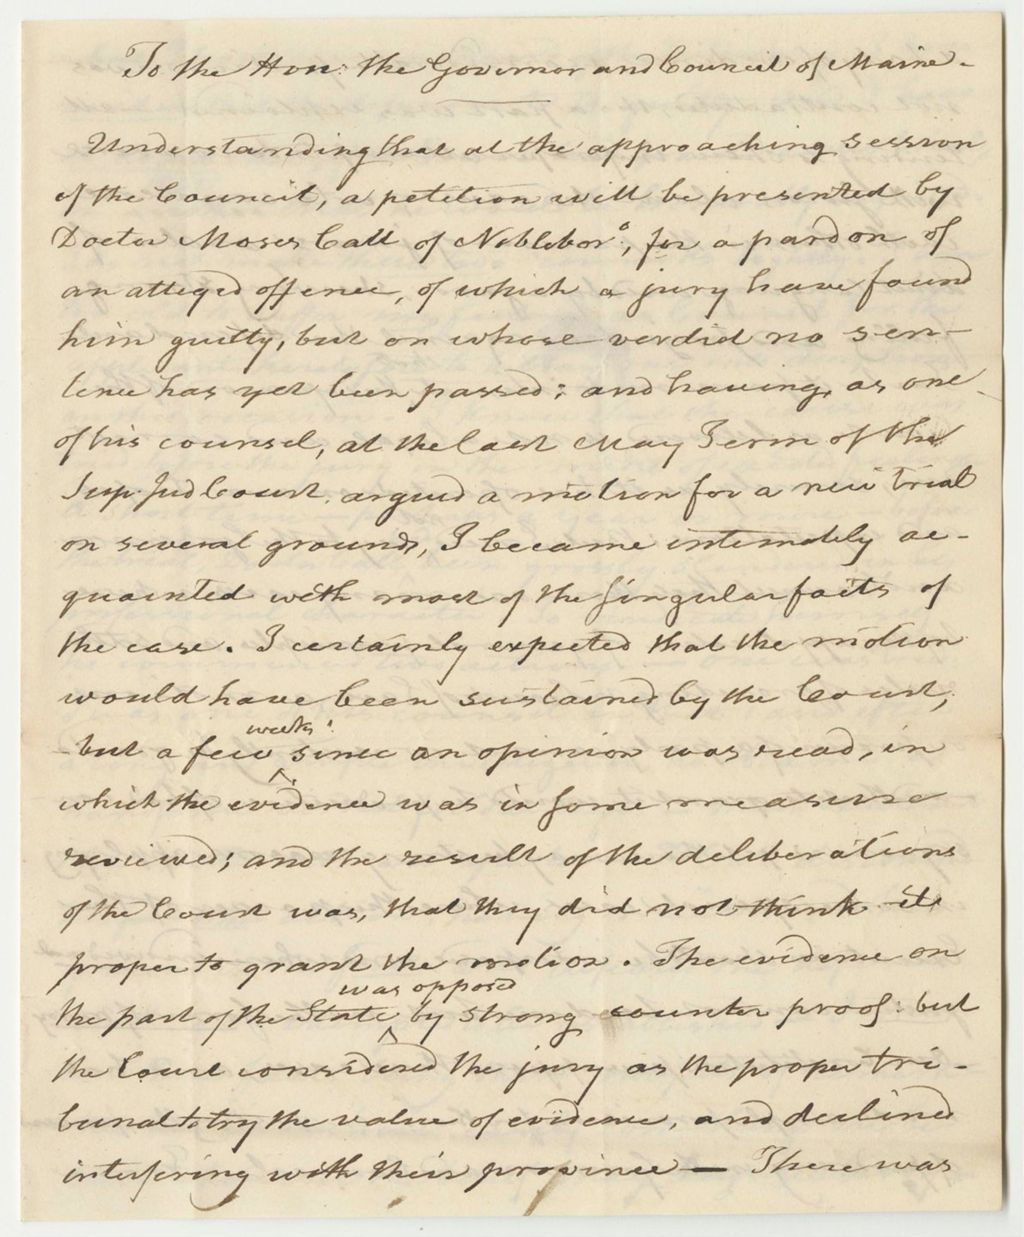 To the Hon: the Governor and Council of Maine -
Understanding that at the approaching session
of the Council, a petition will be presented by
Doctor Moses Call of Noblebor°, for a pardon of
an alleged offence, of which a jury have found
him guilty, but on whose verdict no sen-
tence has yet been passed; and having, as one
of his counsel, at the last May Term of the
Sup. Jud Court. argued a motion for a new trial
on several grounds, I became intimately ac-
quainted with most of the singular facts of
the case. I certainly expected that the motion
would have been sustained by the Court,
weeks'
but a few ^ since an opinion was read, in
which the evidence was in some measure
reviewed; and the result of the deliberations
of the Court was, that they did not think it
proper to grant the motion. The evidence on
was opposed
the part of the State ^ by strong counter proof: but
the Court considered the jury as the proper tri-
bunal to try the value of evidence, and declined
interfering with their province — There was